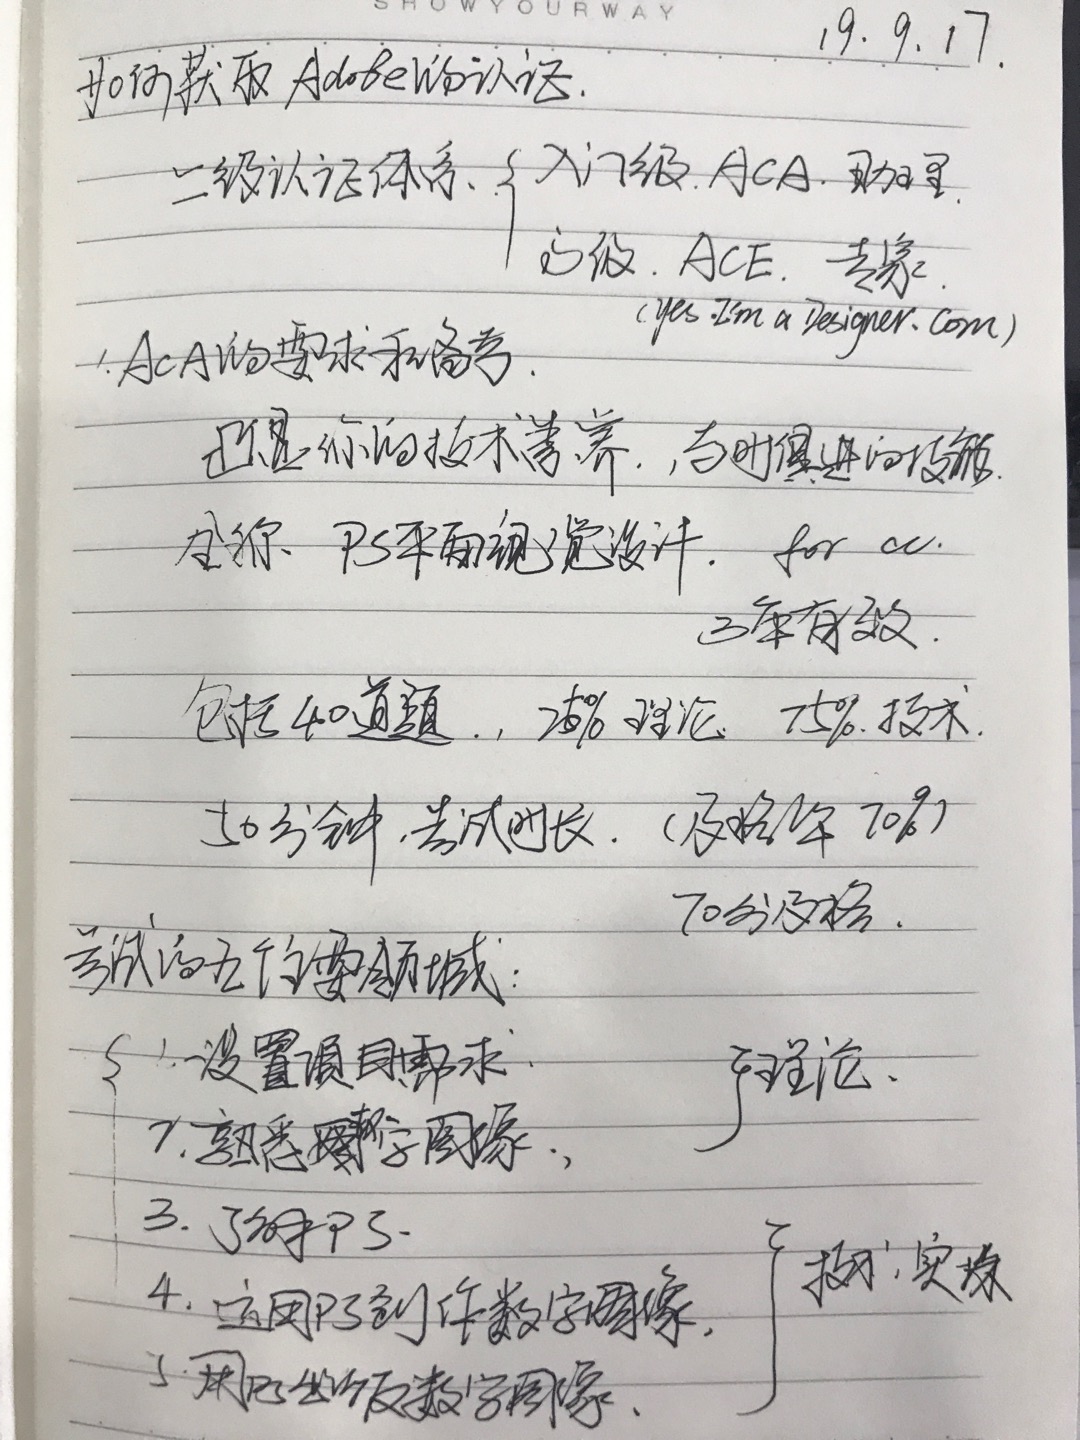 SHOWYOURWAY
19.9.17.
如何获取Adobe的认证.
二级认证体系、{ 入门级.ACA.助理.
高级.ACE.专家.
(yes.I'm a Designer.Com)
1.ACA的要求和备考.
证是你的技术素养.,与时俱进的技能.
全称、PS平面视觉设计. for cc.
三年有效.
包括40道题., 25%理论、75%.技术.
50分钟.考试时长.(及格率70%)
70分及格.
考试的五个主要领域:
1.设置项目需求. }理论、
2.熟悉数字图像.,
3.了解PS.
4.运用PS创作数字图像. }技术、实操
5.用PS出版数字图像.